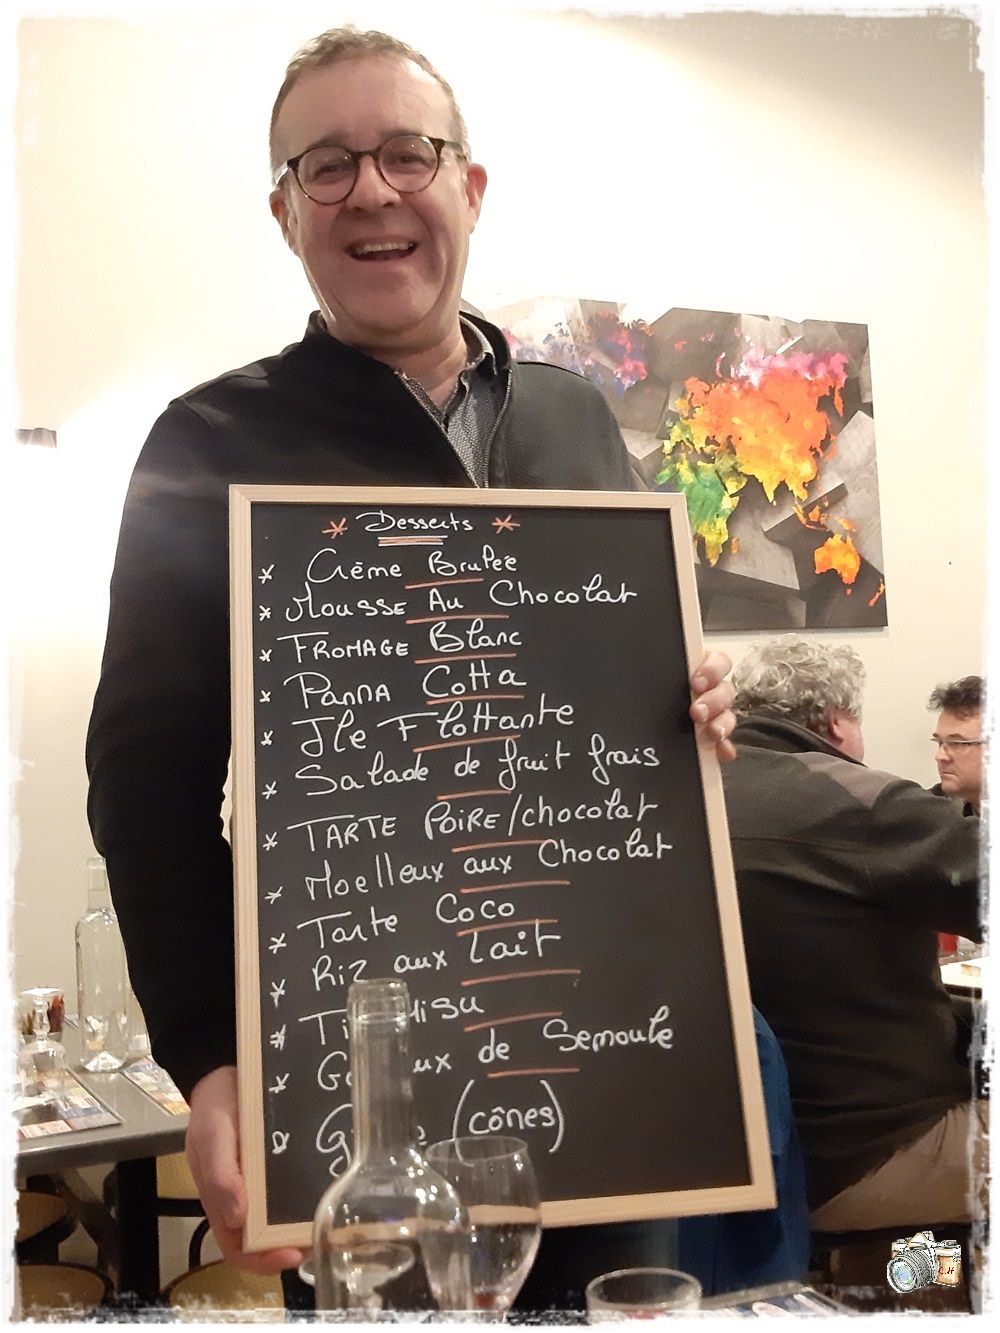 * Desserts *
* Crème Brulée
* Mousse Au Chocolat
* Fromage Blanc
* Panna Cotta
* Ile Flottante
* Salade de fruit frais
* Tarte Poire/chocolat
* Moelleux aux Chocolat
* Tarte Coco
* Riz aux Lait
*
* de Semoule
(cônes)
C.H